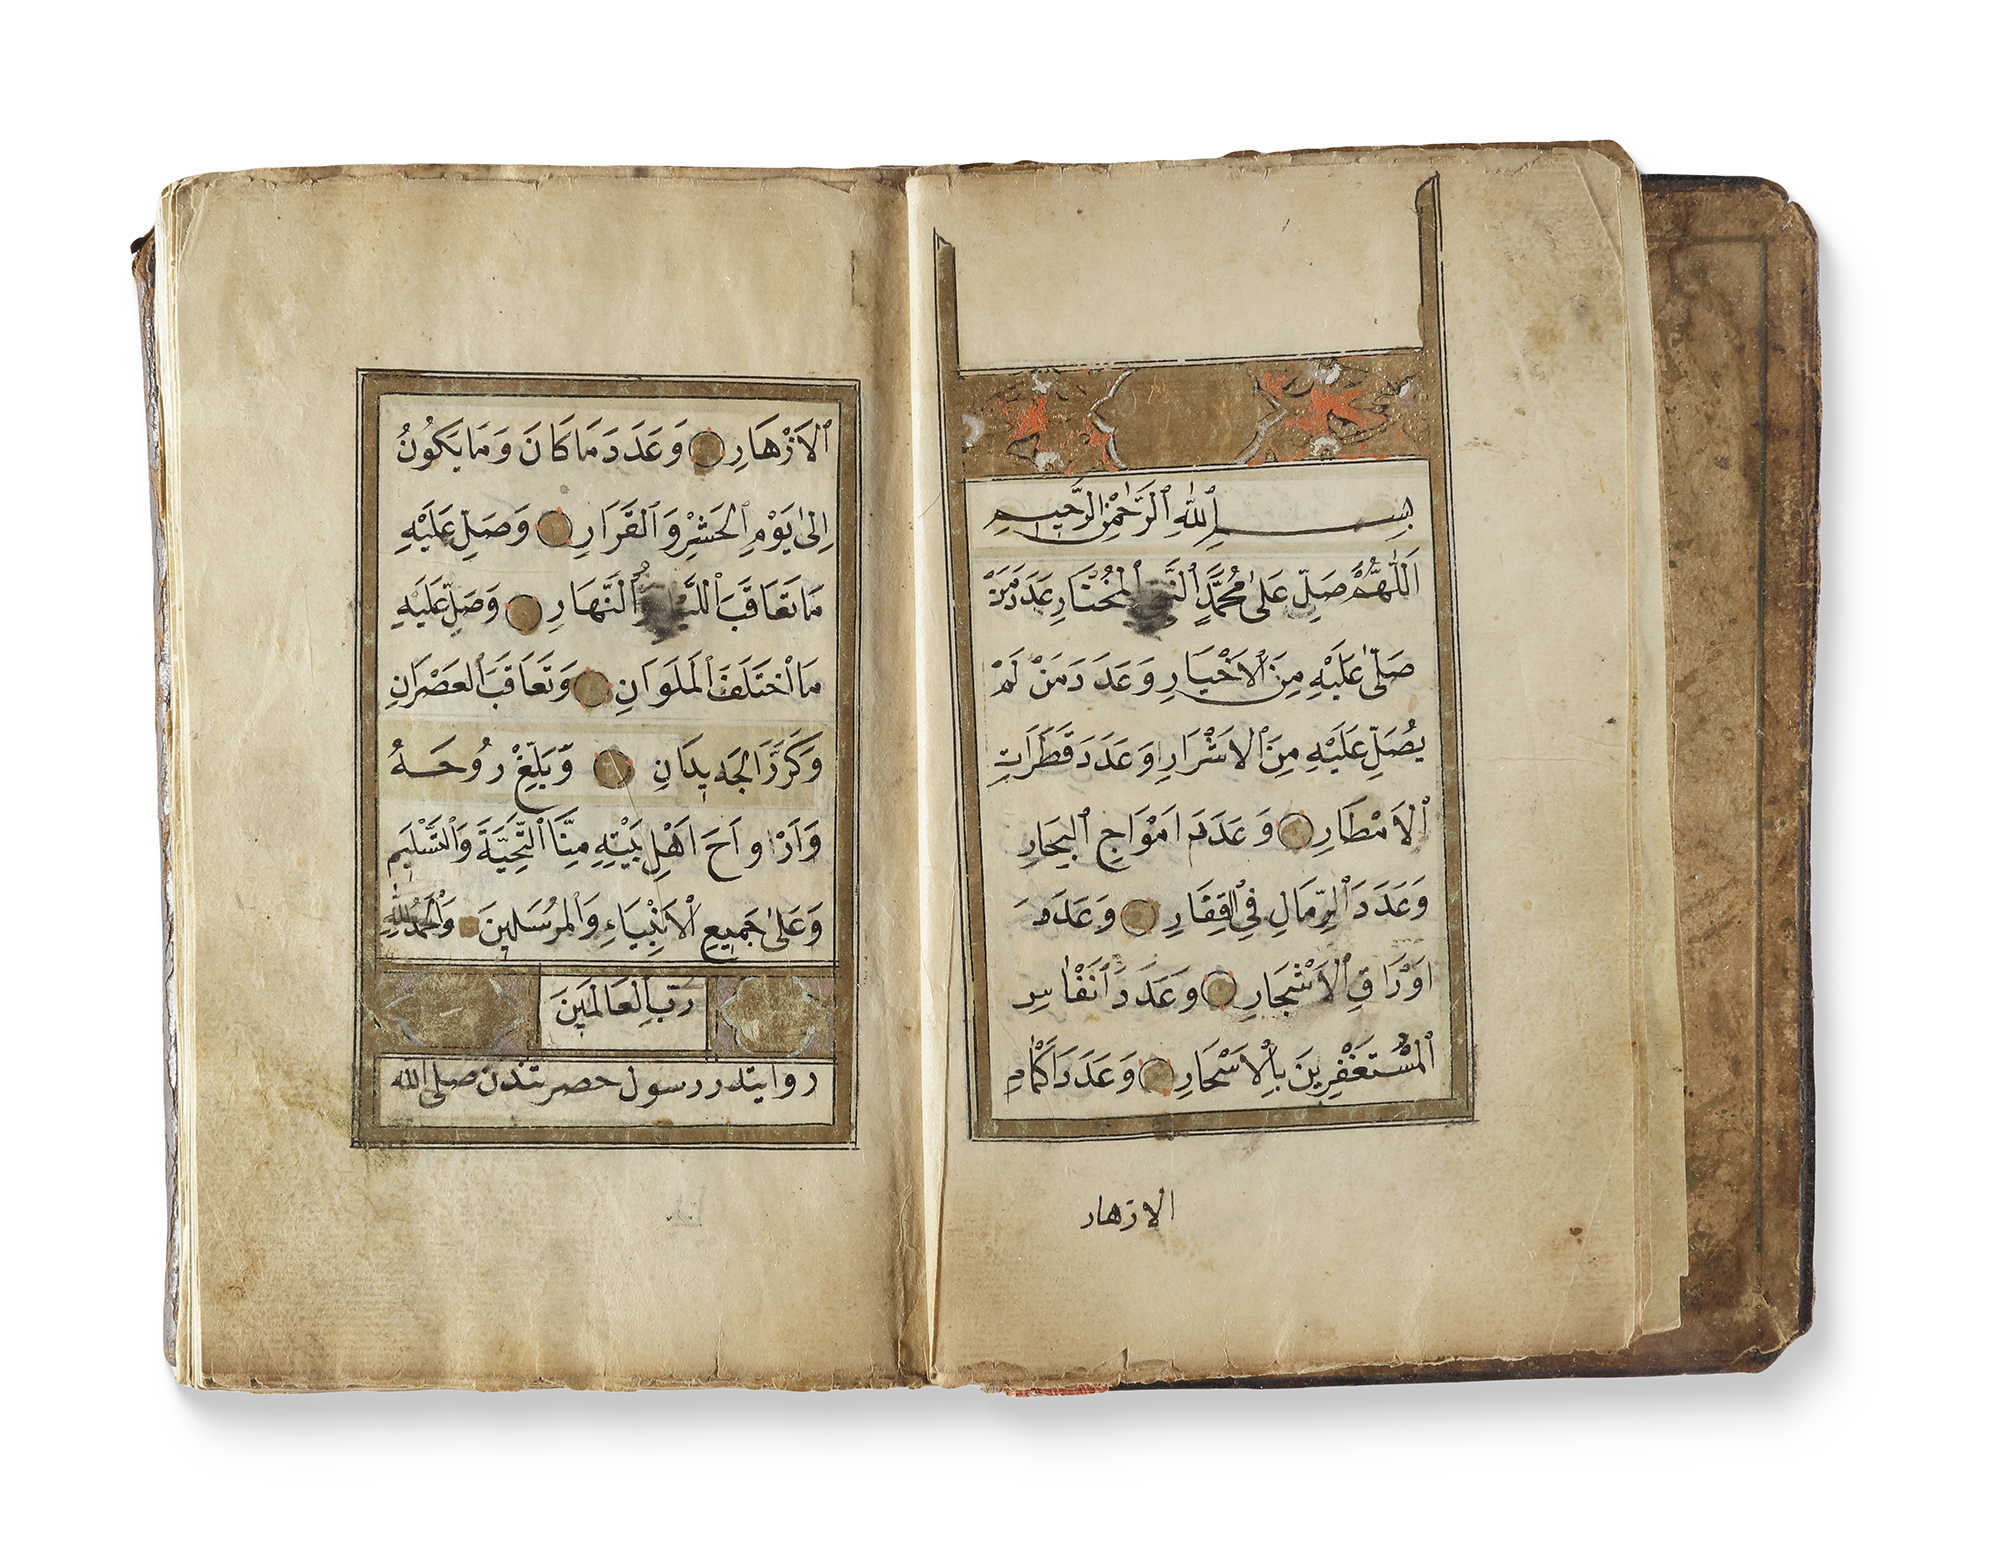 بِسْمِ ٱللّٰهِ ٱلرَّحْمٰنِ ٱلرَّحِيمِ
اَللّٰهُمَّ صَلِّ عَلٰى مُحَمَّدٍ ٱلْمُخْتَارِ عَدَدَ مَنْ
صَلّٰى عَلَيْهِ مِنَ ٱلْاَخْيَارِ وَعَدَدَ مَنْ لَمْ
يُصَلِّ عَلَيْهِ مِنَ ٱلْاَشْرَارِ وَعَدَدَ قَطَرَاتِ
ٱلْاَمْطَارِ وَعَدَدَ اَمْوَاجِ ٱلْبِحَارِ
وَعَدَدَ ٱلرِّمَالِ فِى ٱلْقِفَارِ وَعَدَدَ
اَوْرَاقِ ٱلْاَشْجَارِ وَعَدَدَ اَنْفَاسِ
ٱلْمُسْتَغْفِرِينَ بِٱلْاَسْحَارِ وَعَدَدَ اَكْمَامِ
الازهار
ٱلْاَزْهَارِ وَعَدَدَ مَا كَانَ وَمَا يَكُونُ
اِلٰى يَوْمِ ٱلْحَشْرِ وَٱلْقَرَارِ وَصَلِّ عَلَيْهِ
مَا تَعَاقَبَ ٱللَّيْلُ وَٱلنَّهَارِ وَصَلِّ عَلَيْهِ
مَا اخْتَلَفَ ٱلْمَلَوَانِ وَتَعَاقَبَ ٱلْعَصْرَانِ
وَكَرَّرَ ٱلْجَدِيدَانِ وَبَلِّغْ رُوحَهُ
وَاَرْوَاحَ اَهْلِ بَيْتِهِ مِنَّا ٱلتَّحِيَّةَ وَٱلتَّسْلِيمَ
وَعَلٰى جَمِيعِ ٱلْاَنْبِيَاءِ وَٱلْمُرْسَلِينَ وَٱلْحَمْدُ لِلّٰهِ
رَبِّ ٱلْعَالَمِينَ
روايتدر رسول حضرتندن صلى الله